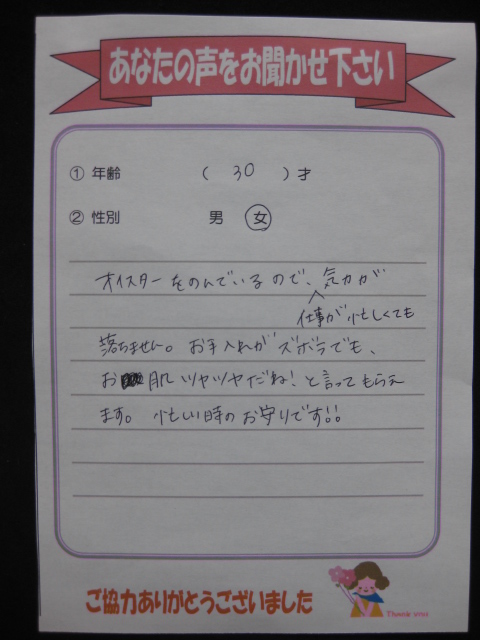 あなたの声をお聞かせ下さい
① 年齢 ( 30 ) 才
② 性別 男 女
オイスターをのんでいるので、気力が
仕事が忙しくても
落ちません。お手入れがズボラでも、
お肌ツヤツヤだね!と言ってもらえ
ます。忙しい時のお守りです!!
ご協力ありがとうございました
Thank you